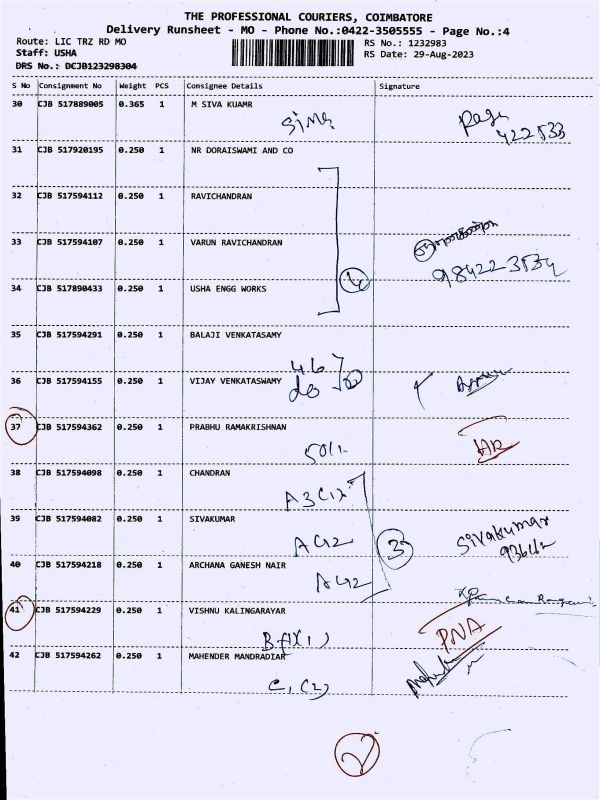 THE PROFESSIONAL COURIERS, COIMBATORE
Delivery Runsheet - MO - Phone No.:0422-3505555 - Page No.:4
Route: LIC TRZ RD MO RS No.: 1232983
Staff: USHA RS Date: 29-Aug-2023
DRS No.: DCJB123298304
S No Consignment No Weight PCS Consignee Details Signature
30 CJB 517889005 0.365 1 M SIVA KUAMR
31 CJB 517920195 0.250 1 NR DORAISWAMI AND CO
32 CJB 517594112 0.250 1 RAVICHANDRAN
33 CJB 517594107 0.250 1 VARUN RAVICHANDRAN
34 CJB 517890433 0.250 1 USHA ENGG WORKS
4
35 CJB 517594291 0.250 1 BALAJI VENKATASAMY
36 CJB 517594155 0.250 1 VIJAY VENKATASWAMY
do
37 CJB 517594362 0.250 1 PRABHU RAMAKRISHNAN
38 CJB 517594098 0.250 1 CHANDRAN
39 CJB 517594082 0.250 1 SIVAKUMAR
Sivakumar
3
40 CJB 517594218 0.250 1 ARCHANA GANESH NAIR
41 CJB 517594229 0.250 1 VISHNU KALINGARAYAR
PNA
42 CJB 517594262 0.250 1 MAHENDER MANDRADIAR
C1(2)
2